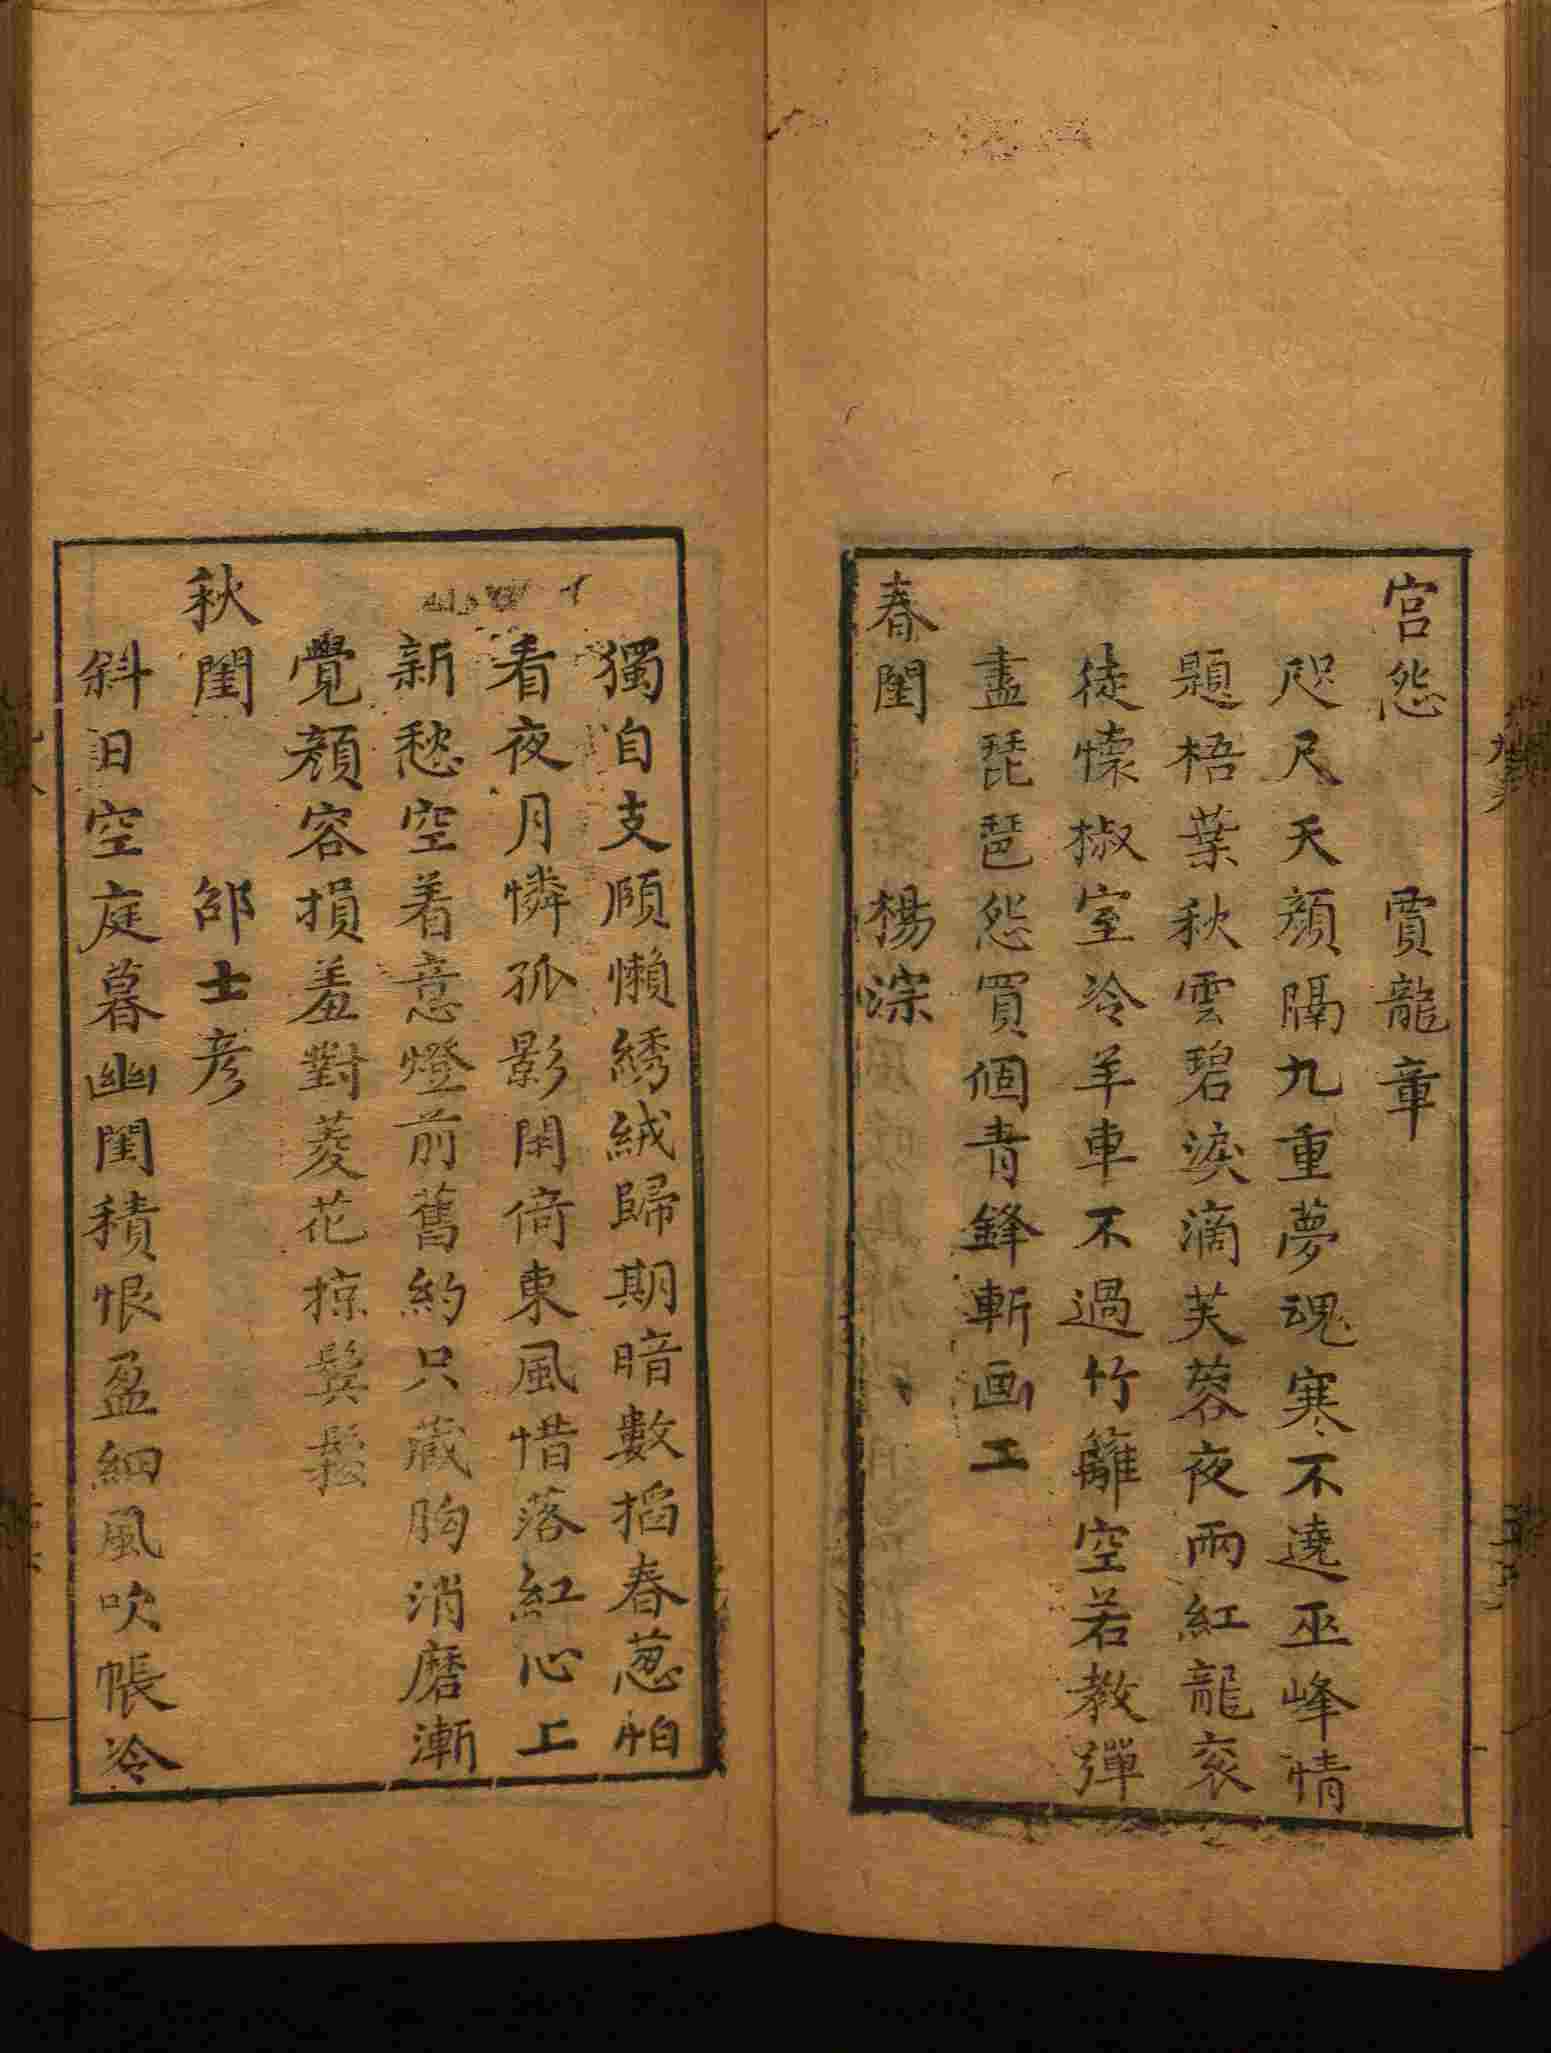 宫怨　賈龍章
咫尺天顔隔九重夢魂寒不遶巫峰情
題梧葉秋雲碧淚滴芙蓉夜雨紅龍衮
徒懐椒室冷羊車不過竹籬空若教彈
盡琵琶怨買個青鋒斬画工
春閨　楊淙
獨自支頤懶綉絨歸期暗數搯春葱怕
看夜月憐孤影閑倚東風惜落紅心上
新愁空着意燈前舊約只藏胸消磨漸
覺顔容損羞對菱花掠鬂鬆
秋閨　邵士彦
斜日空庭暮幽閨積恨盈細風吹帳冷